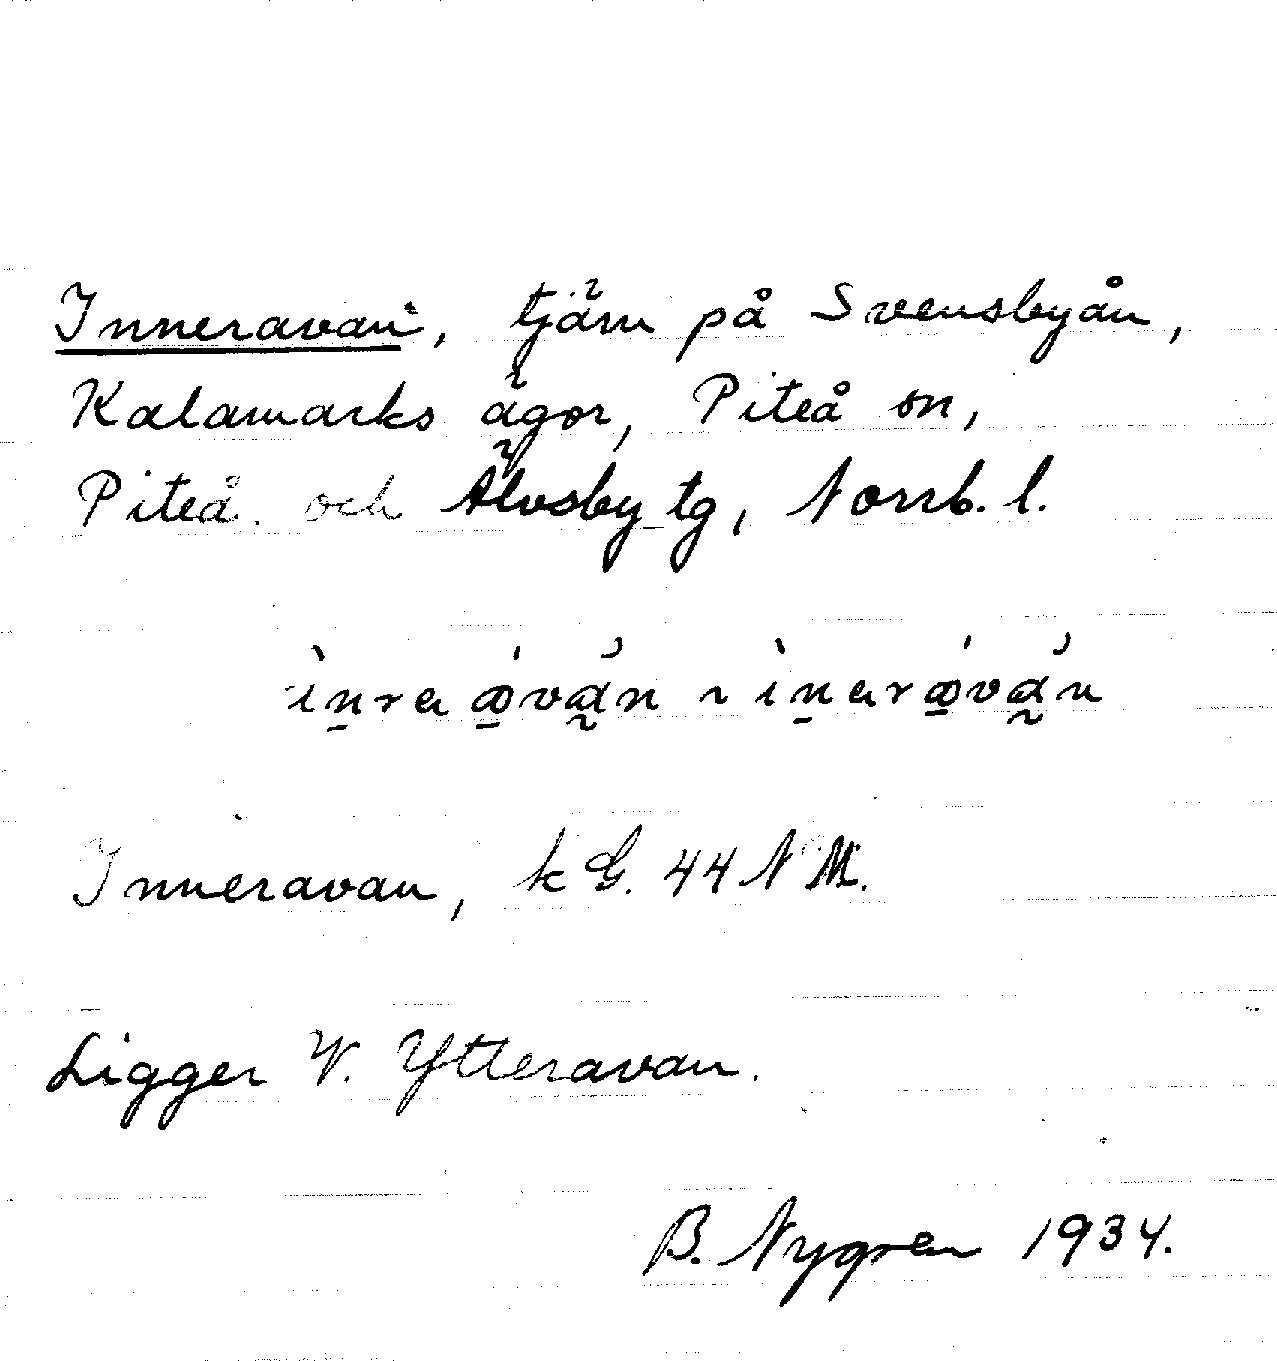 Inneravan, tjärn på Svensbyån,
Kalamarks ägor, Piteå sn,
Piteå och Älvsby tg, Norrb. l.
Inneravan, k G. 44 N M.
Ligger V. Ytteravan.
B. Nygren 1934.